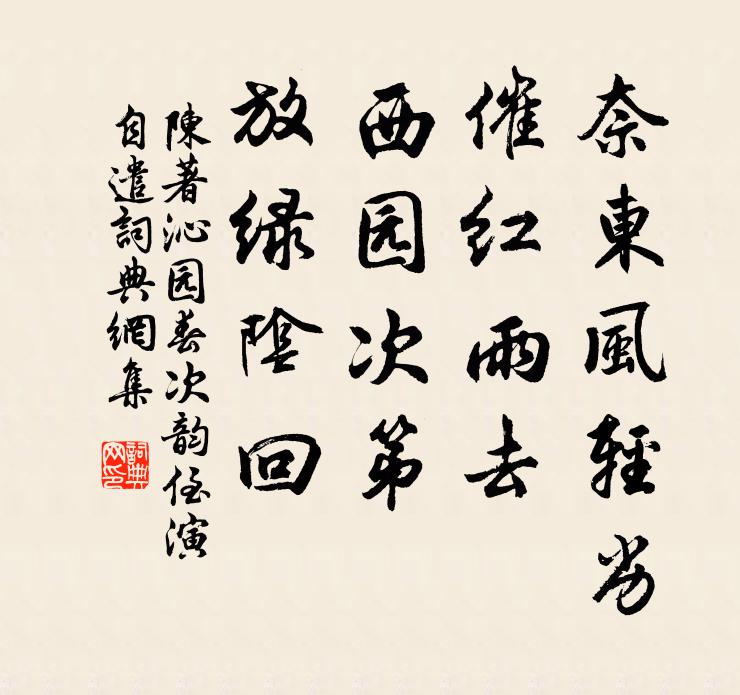 奈東風輕劣
催红雨去
西园次第
放绿陰回
陳著沁园春次韵侄演
自遣詞典網集
詞典网印